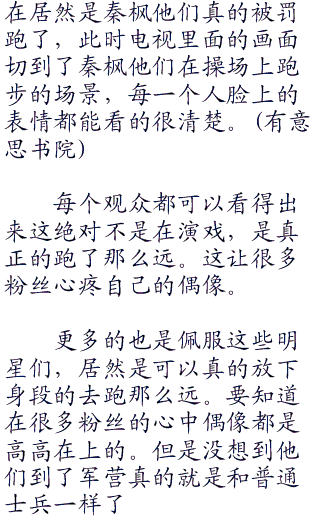 在居然是秦枫他们真的被罚
跑了，此时电视里面的画面
切到了秦枫他们在操场上跑
步的场景，每一个人脸上的
表情都能看的很清楚。(有意
思书院)
每个观众都可以看得出
来这绝对不是在演戏，是真
正的跑了那么远。这让很多
粉丝心疼自己的偶像。
更多的也是佩服这些明
星们，居然是可以真的放下
身段的去跑那么远。要知道
在很多粉丝的心中偶像都是
高高在上的。但是没想到他
们到了军营真的就是和普通
士兵一样了